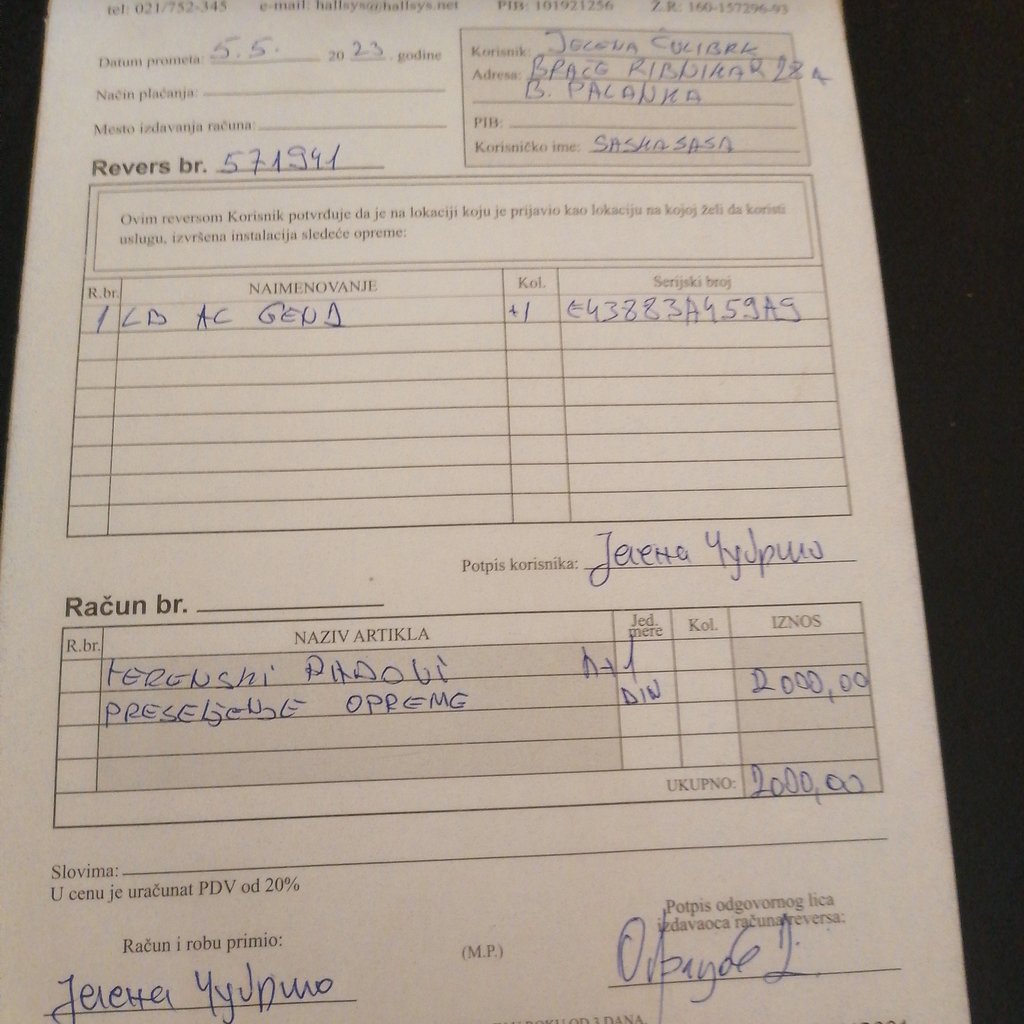 tel: 021/752-345 e-mail: hallsys@hallsys.net PIB: 101921256 Ž.R: 160-157296-93
Datum prometa: 5.5. 20 23. godine
Način plaćanja:
Mesto izdavanja računa:
Revers br. 571941
Korisnik: JELENA ČULIBRK
Adresa: BRAĆE RIBNIKAR 28 A
B. PALANKA
PIB:
Korisničko ime: SASKASASA
Ovim reversom Korisnik potvrđuje da je na lokaciji koju je prijavio kao lokaciju na kojoj želi da koristi
uslugu, izvršena instalacija sledeće opreme:
R.br. NAIMENOVANJE Kol. Serijski broj
1 LB AC GEN2 +1 E43883A459A9
Potpis korisnika: Јелена
Račun br.
R.br. NAZIV ARTIKLA Jed. mere Kol. IZNOS
TERENSKI RADOVI
PRESELJENJE OPREME DIN 2000,00
UKUPNO: 2000,00
Slovima:
U cenu je uračunat PDV od 20%
Potpis odgovornog lica
izdavaoca računa/reversa:
Račun i robu primio: (M.P.)
Јелена
ROKU OD 3 DANA.